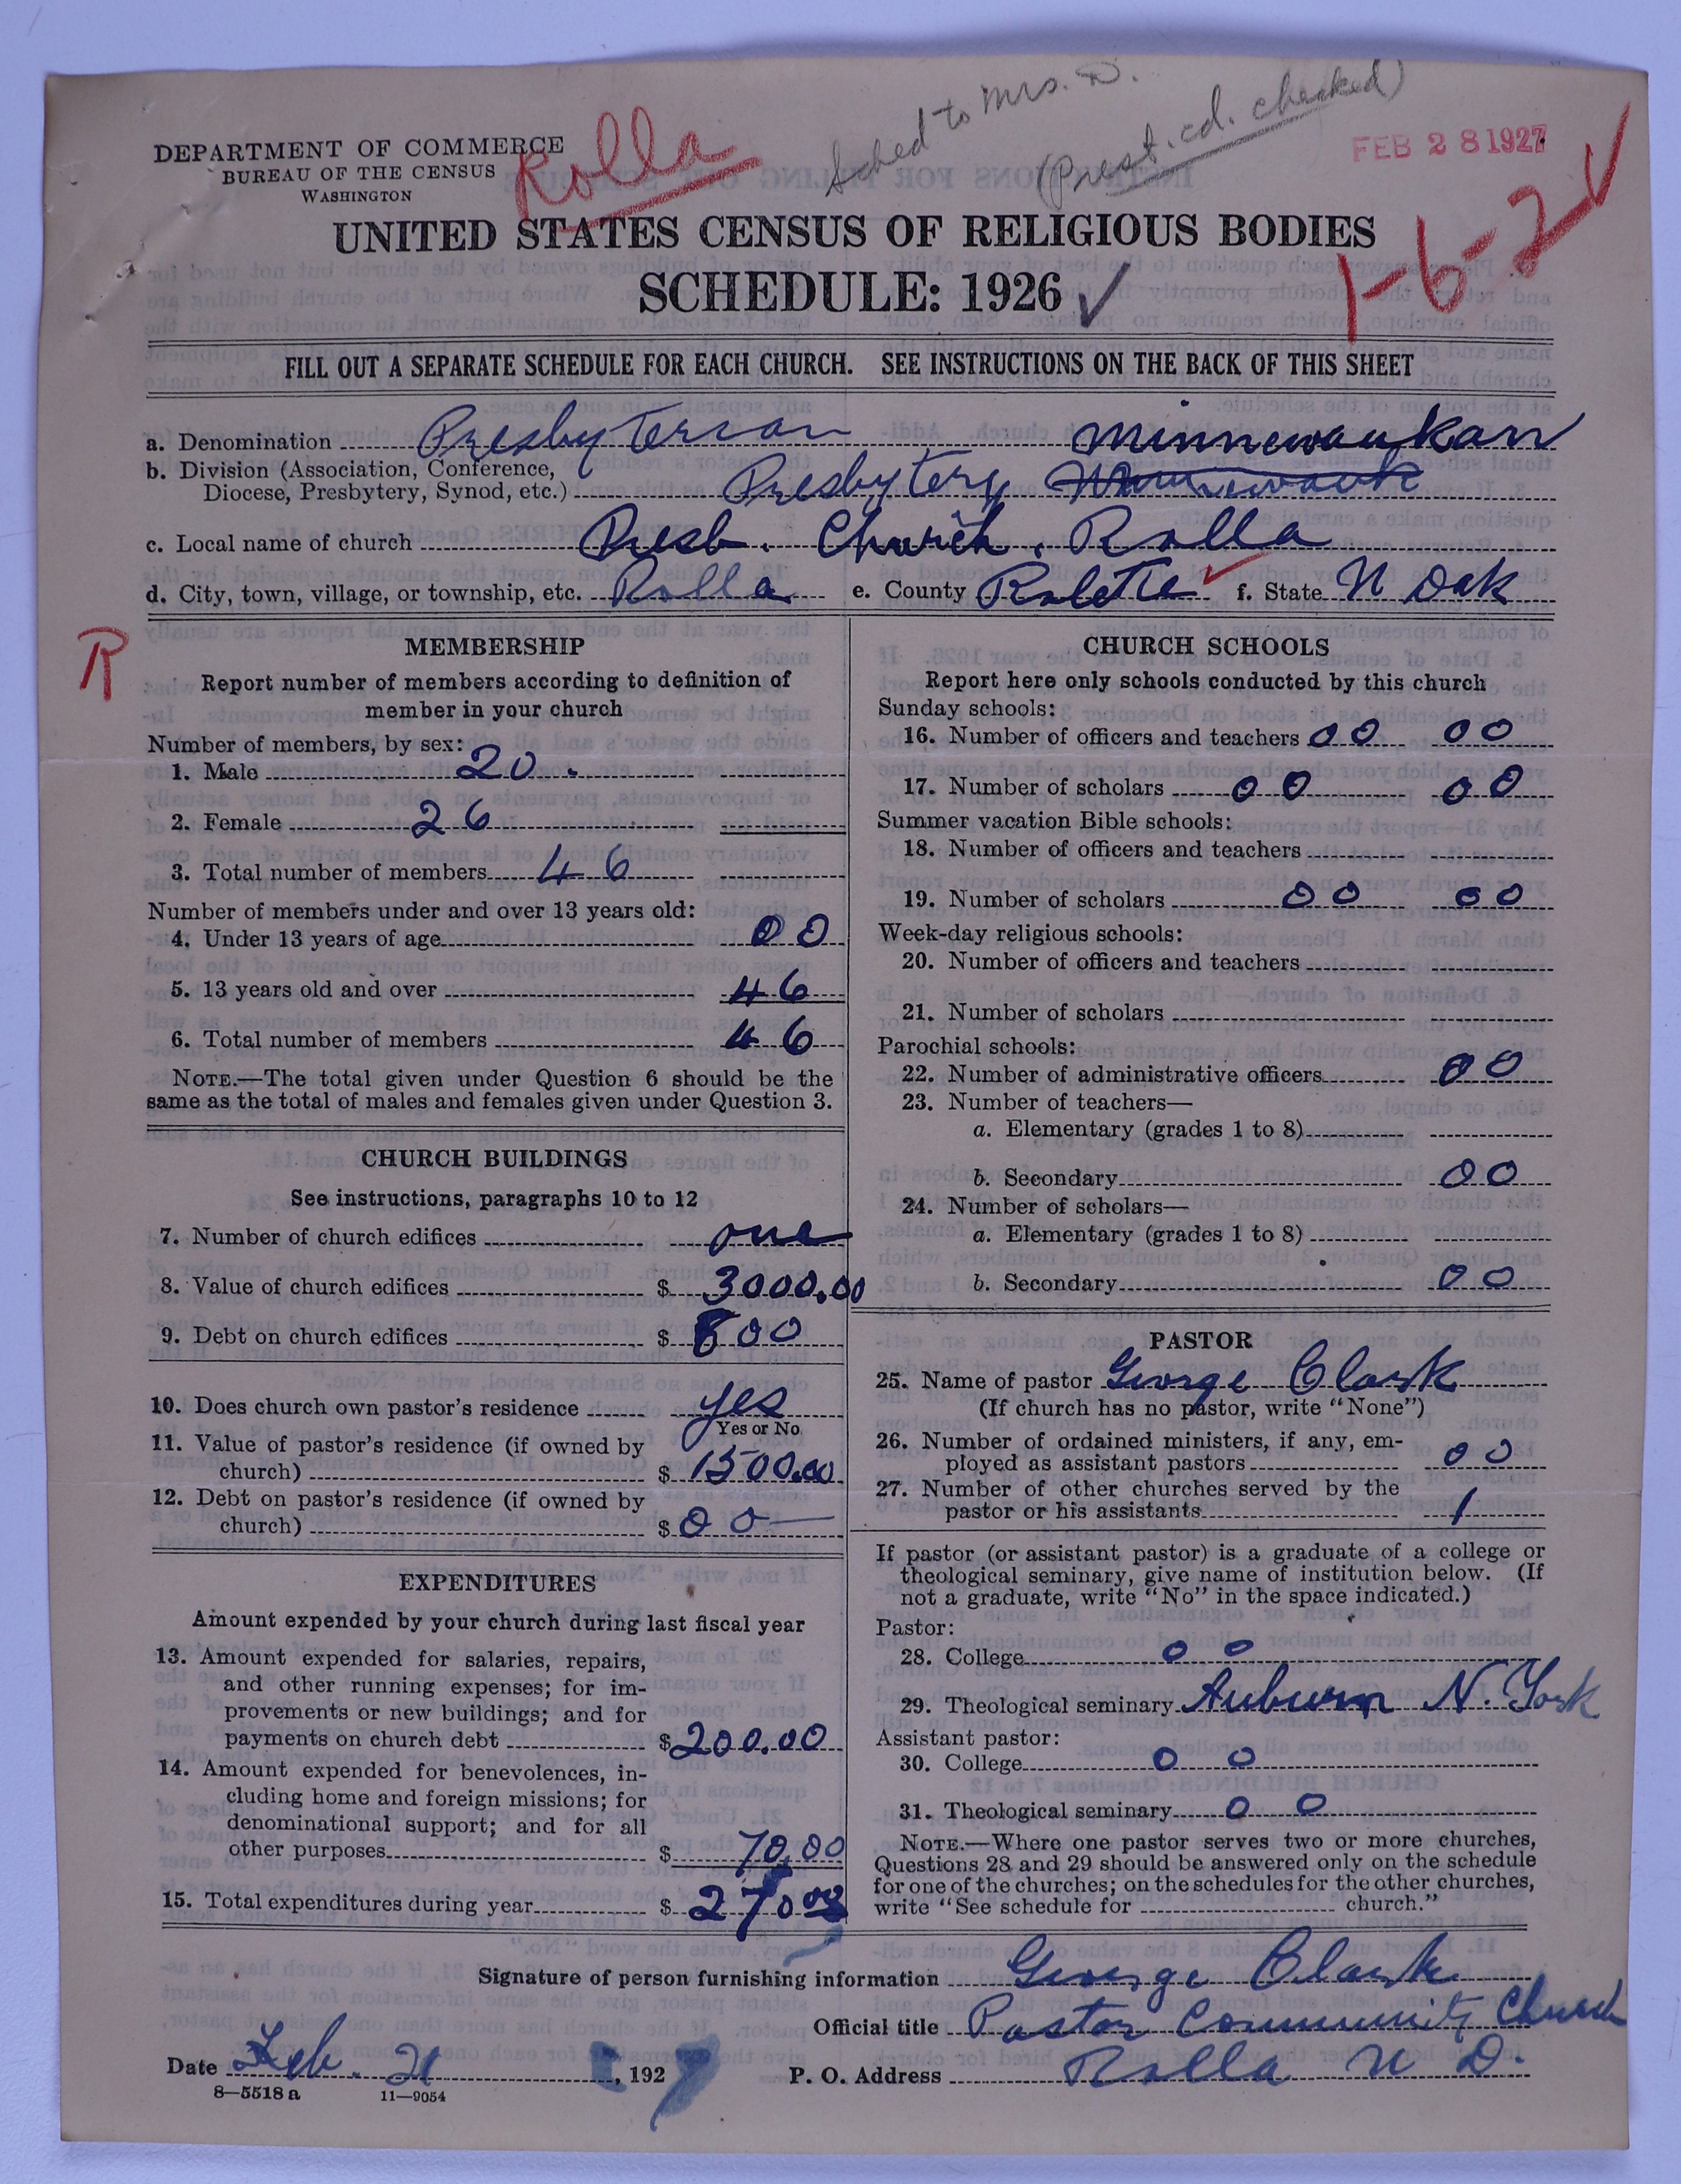 Sched to Mrs. D.
(Prest. cd. checked)
DEPARTMENT OF COMMERCE
BUREAU OF THE CENSUS
WASHINGTON
Rolla
FEB 28 1927
UNITED STATES CENSUS OF RELIGIOUS BODIES
SCHEDULE: 1926 ✓
1-6-2 ✓
FILL OUT A SEPARATE SCHEDULE FOR EACH CHURCH. SEE INSTRUCTIONS ON THE BACK OF THIS SHEET
a. Denomination Presbyterian Minnewaukan
b. Division (Association, Conference,
Diocese, Presbytery, Synod, etc.) Presbytery
c. Local name of church Presb. Church, Rolla
d. City, town, village, or township, etc. Rolla e. County Rolette ✓ f. State N Dak
R
MEMBERSHIP
Report number of members according to definition of
member in your church
Number of members, by sex:
1. Male 20.
2. Female 26
3. Total number of members 46
Number of members under and over 13 years old:
4. Under 13 years of age 00
5. 13 years old and over 46
6. Total number of members 46
NOTE.—The total given under Question 6 should be the
same as the total of males and females given under Question 3.
CHURCH BUILDINGS
See instructions, paragraphs 10 to 12
7. Number of church edifices one
8. Value of church edifices $ 3000.00
9. Debt on church edifices $ 800
10. Does church own pastor's residence yes
Yes or No
11. Value of pastor's residence (if owned by
church) $ 1500.00
12. Debt on pastor's residence (if owned by
church) $ 00—
EXPENDITURES
Amount expended by your church during last fiscal year
13. Amount expended for salaries, repairs,
and other running expenses; for im-
provements or new buildings; and for
payments on church debt $ 200.00
14. Amount expended for benevolences, in-
cluding home and foreign missions; for
denominational support; and for all
other purposes $ 70.00
15. Total expenditures during year $ 270.00
CHURCH SCHOOLS
Report here only schools conducted by this church
Sunday schools:
16. Number of officers and teachers 00 00
17. Number of scholars 00 00
Summer vacation Bible schools:
18. Number of officers and teachers
19. Number of scholars 00 00
Week-day religious schools:
20. Number of officers and teachers
21. Number of scholars
Parochial schools:
22. Number of administrative officers 00
23. Number of teachers—
a. Elementary (grades 1 to 8)
b. Secondary 00
24. Number of scholars—
a. Elementary (grades 1 to 8)
b. Secondary 00
PASTOR
25. Name of pastor George Clark
(If church has no pastor, write "None")
26. Number of ordained ministers, if any, em-
ployed as assistant pastors 00
27. Number of other churches served by the
pastor or his assistants 1
If pastor (or assistant pastor) is a graduate of a college or
theological seminary, give name of institution below. (If
not a graduate, write "No" in the space indicated.)
Pastor:
28. College 0 0
29. Theological seminary Auburn N. York
Assistant pastor:
30. College 0 0
31. Theological seminary 0 0
NOTE.—Where one pastor serves two or more churches,
Questions 28 and 29 should be answered only on the schedule
for one of the churches; on the schedules for the other churches,
write "See schedule for church."
Signature of person furnishing information George Clark
Official title Pastor Community Church
Date Feb. 21, 1927 P. O. Address Rolla N D.
8—5518 a 11—9054